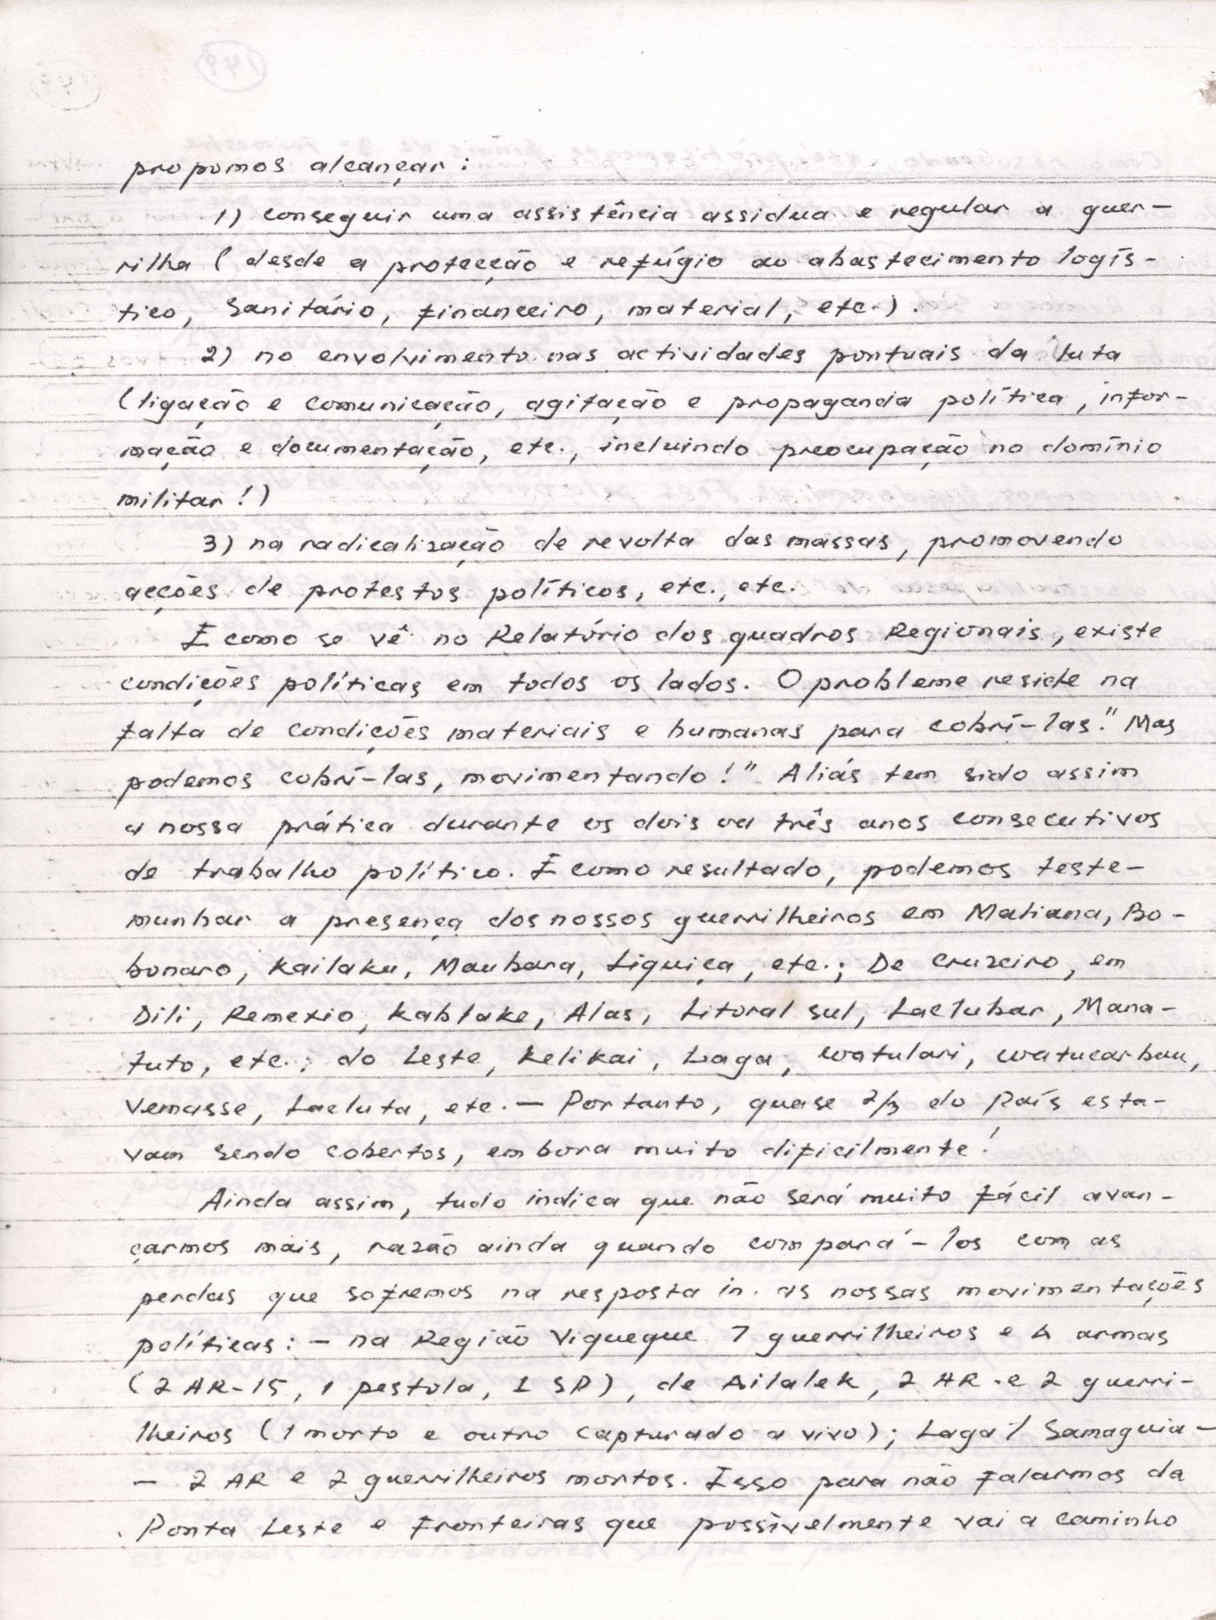 propomos alcançar:
1) conseguir uma assistência assidua e regular a guer-
rilha (desde a protecção e refúgio ao abastecimento logís-
tico, Sanitário, financeiro, material, etc.).
2) no envolvimento nas actividades pontuais da luta
(ligação e comunicação, agitação e propaganda política, infor-
mação e documentação, etc., incluindo preocupação no domínio
militar!)
3) na radicalização de revolta das massas, promovendo
acções de protestos políticos, etc., etc.
E como se vê no Relatório dos quadros Regionais, existe
condições políticas em todos os lados. O probleme reside na
falta de condições materiais e humanas para cobrí-las." Mas
podemos cobrí-las, movimentando!" Aliás tem sido assim
a nossa prática durante os dois ou três anos consecutivos
de trabalho político. E como resultado, podemos teste-
munhar a presença dos nossos guerrilheiros em Maliana, Bo-
bonaro, Kailaku, Maubara, Liquiça, etc.; De Cruzeiro, em
Dili, Remexio, Kablake, Alas, Litoral sul, Laclubar, Mana-
tuto, etc.; do Leste, Kelikai, Laga, Watulari, Watucarbau,
Vemasse, Lacluta, etc. - Portanto, quase 2/3 do País esta-
vam sendo cobertos, embora muito dificilmente!
Ainda assim, tudo indica que não será muito fácil avan-
çarmos mais, razão ainda quando compará-los com as
perdas que sofremos na resposta in. as nossas movimentações
políticas: - na Região Viqueque 7 guerrilheiros e 4 armas
(2 AR-15, 1 pestola, 1 SP), de Ailalek, 2 AR e 2 guerri-
lheiros (1 morto e outro capturado a vivo); Laga/Samaguia-
- 2 AR e 2 guerrilheiros mortos. Isso para não falarmos da
Ponta Leste e Fronteiras que possìvelmente vai a caminho